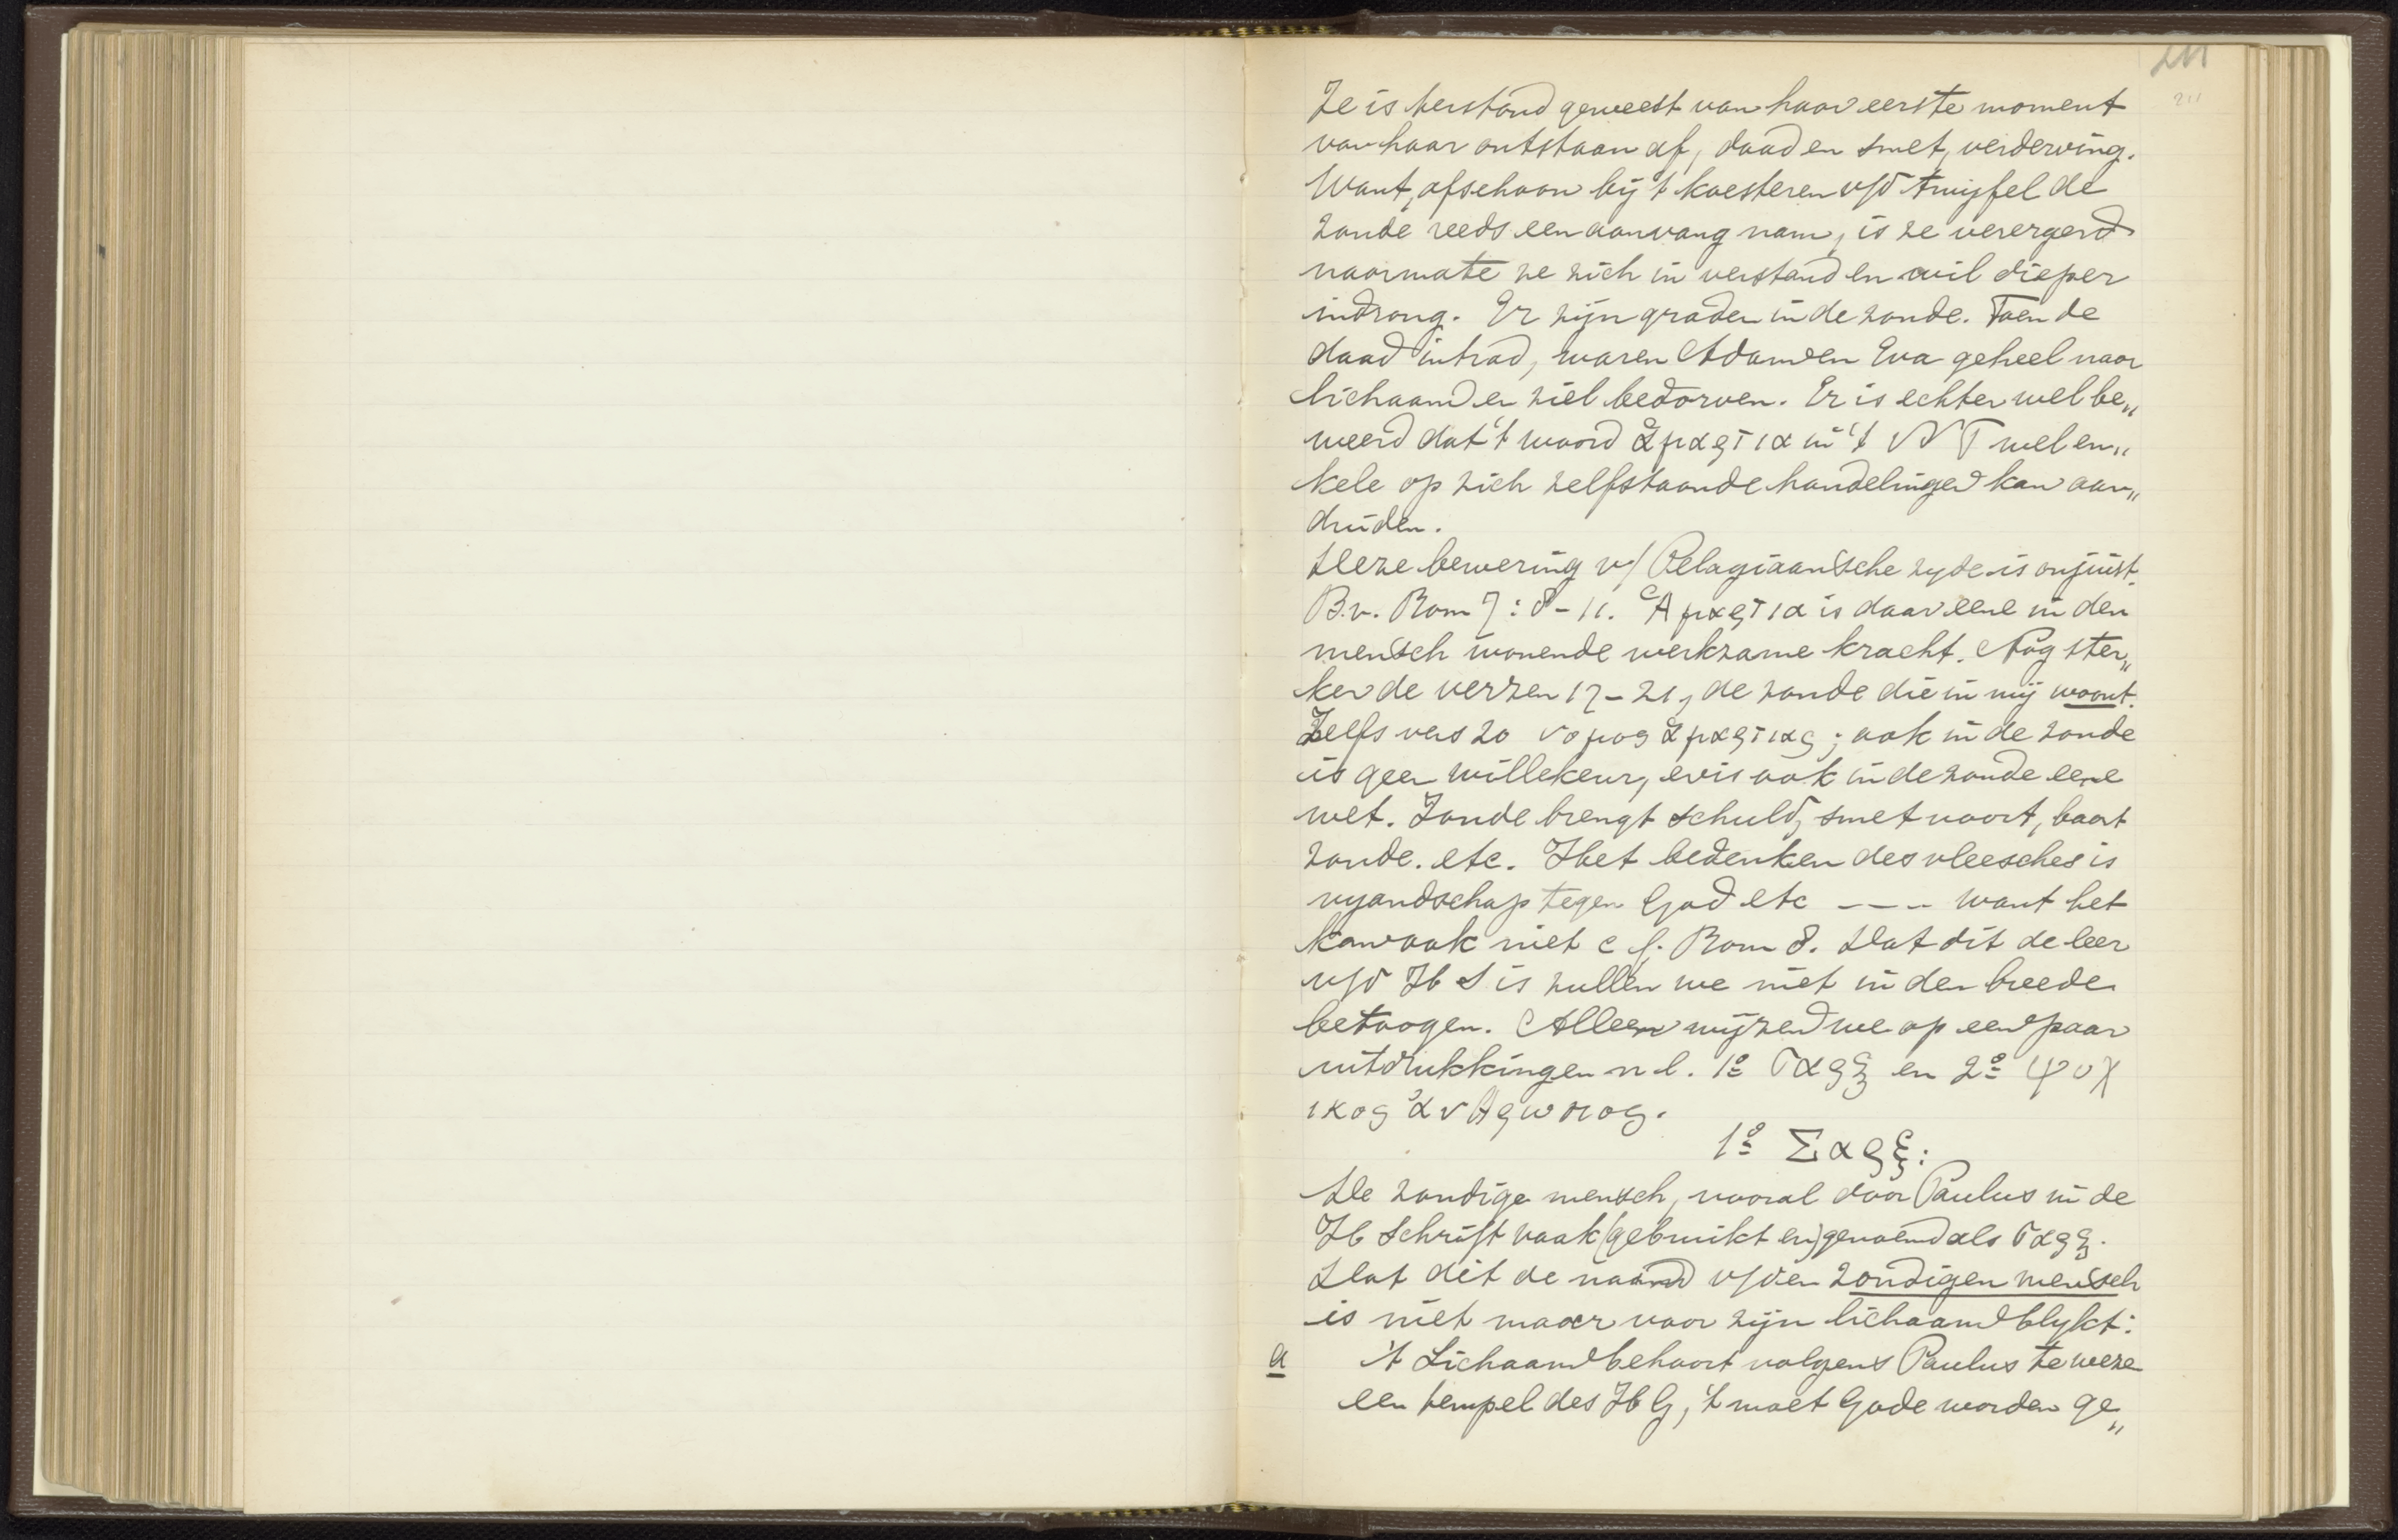 211
211
Ze is toestand geweest van haar eerste moment
van haar ontstaan af, daad en smet, verderving.
Want, ofschoon bij 't koesteren v/d twijfel de
zonde reeds een aanvang nam, is ze verergerd
naarmate ze zich in verstand en wil dieper
indrong. Er zijn graden in de zonde. Toen de
daad intrad, waren Adam en Eva geheel naar
lichaam en ziel bedorven. Er is echter wel be„
weerd dat 't woord ἁμαρτια in 't NT wel en„
kele op zich zelfstaande handelingen kan aan„
duiden.
Deze bewering v/ Pelagiaansche zyde is onjuist.
B.v. Rom 7:8-11. Ἁμαρτια is daar eene in den
mensch wonende werkzame kracht. Nog ster„
ker de verzen 17-21, de zonde die in mij woont.
Zelfs vers 20 νομος ἁμαρτιας; ook in de zonde
is geen willekeur, er is ook in de zonde eene
wet. Zonde brengt schuld, smet voort, baart
zonde. etc. Het bedenken des vleesches is
vyandschap tegen God etc --- want het
kan ook niet cf. Rom 8. Dat dit de leer
v/d H S is zullen we niet in den breede
betoogen. Alleen wijzen we op een paar
uitdrukkingen n.l. 1º σαρξ en 2º ψυχ
ικος ἀνθρωπος.
1º Σαρξ:
De zondige mensch, vooral door Paulus in de
H Schrift vaak (gebruikt en) genoemd als σαρξ.
Dat dit de naam v/den zondigen mensch
is niet maar voor zijn lichaam blykt:
a 't Lichaam behoort volgens Paulus te weze
een tempel des H G, 't moet Gode worden ge„